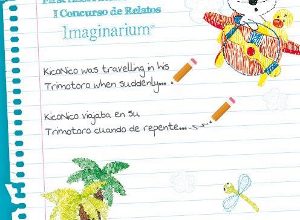 I Concurso de Relatos
Imaginarium
KicoNico was travelling in his
Trimotoro when suddenly...
KicoNico viajaba en su
Trimotoro cuando de repente...